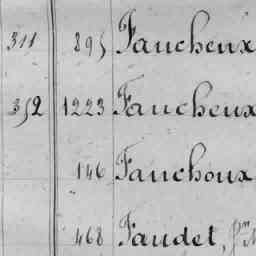 311 895 Faucheux
352 1223 Faucheux
146 Fauchoux
468 Faudet,